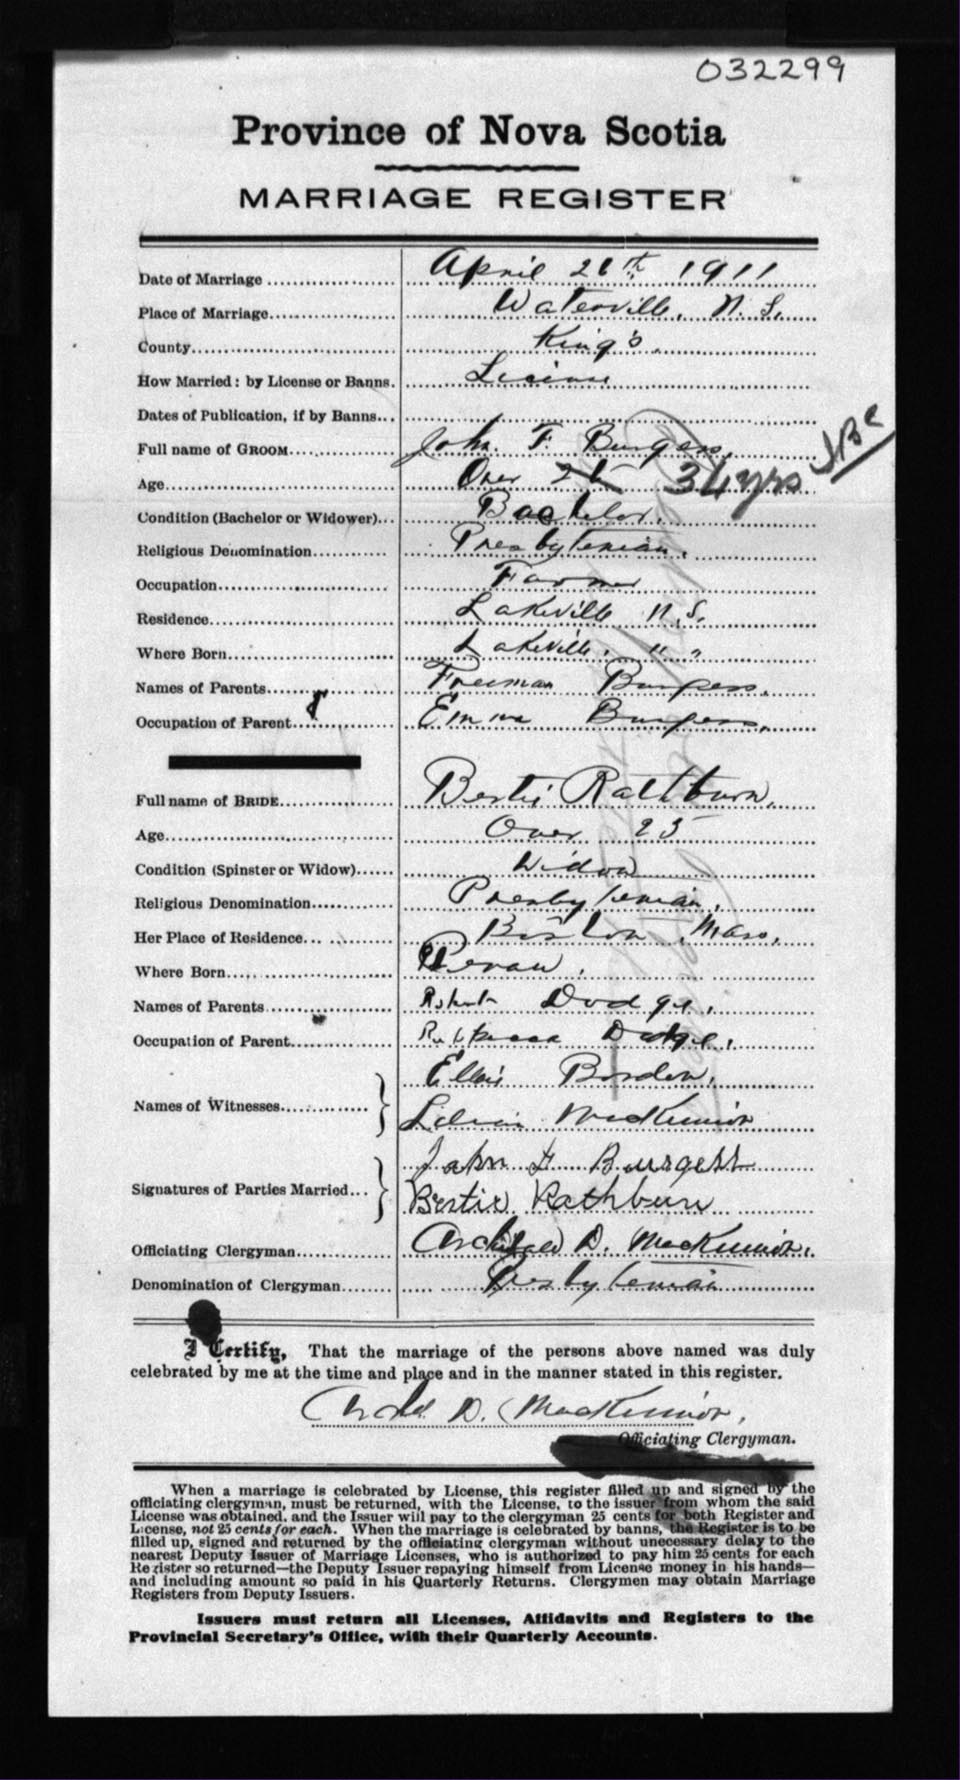 032299
Province of Nova Scotia
MARRIAGE REGISTER
Date of Marriage April 26th 1911
Place of Marriage Waterville, N. S.
County King's.
How Married: by License or Banns. License
Dates of Publication, if by Banns
Full name of GROOM John. F. Burgess, JBC
Age Over 25 34 yrs
Condition (Bachelor or Widower) Bachelor.
Religious Denomination Presbyterian.
Occupation Farmer
Residence Lakeville N. S.
Where Born Lakeville. " "
Names of Parents Freeman Burgess.
Occupation of Parent Emma Burgess.
Full name of BRIDE Bertie Rathburn.
Age Over 25
Condition (Spinster or Widow) Widow
Religious Denomination Presbyterian.
Her Place of Residence Boston, Mass.
Where Born
Names of Parents Robert Dodge.
Occupation of Parent Dodge.
Names of Witnesses Ellis Borden.
MacKinnon
Signatures of Parties Married John F Burgess
Bertie Rathburn
Officiating Clergyman Archibald D. MacKinnon.
Denomination of Clergyman Presbyterian
I Certify, That the marriage of the persons above named was duly
celebrated by me at the time and place and in the manner stated in this register.
Archd. D. MacKinnon.
Officiating Clergyman.
When a marriage is celebrated by License, this register filled up and signed by the
officiating clergyman, must be returned, with the License, to the issuer from whom the said
License was obtained, and the Issuer will pay to the clergyman 25 cents for both Register and
License, not 25 cents for each. When the marriage is celebrated by banns, the Register is to be
filled up, signed and returned by the officiating clergyman without unnecessary delay to the
nearest Deputy Issuer of Marriage Licenses, who is authorized to pay him 25 cents for each
Register so returned—the Deputy Issuer repaying himself from License money in his hands—
and including amount so paid in his Quarterly Returns. Clergymen may obtain Marriage
Registers from Deputy Issuers.
Issuers must return all Licenses, Affidavits and Registers to the
Provincial Secretary's Office, with their Quarterly Accounts.